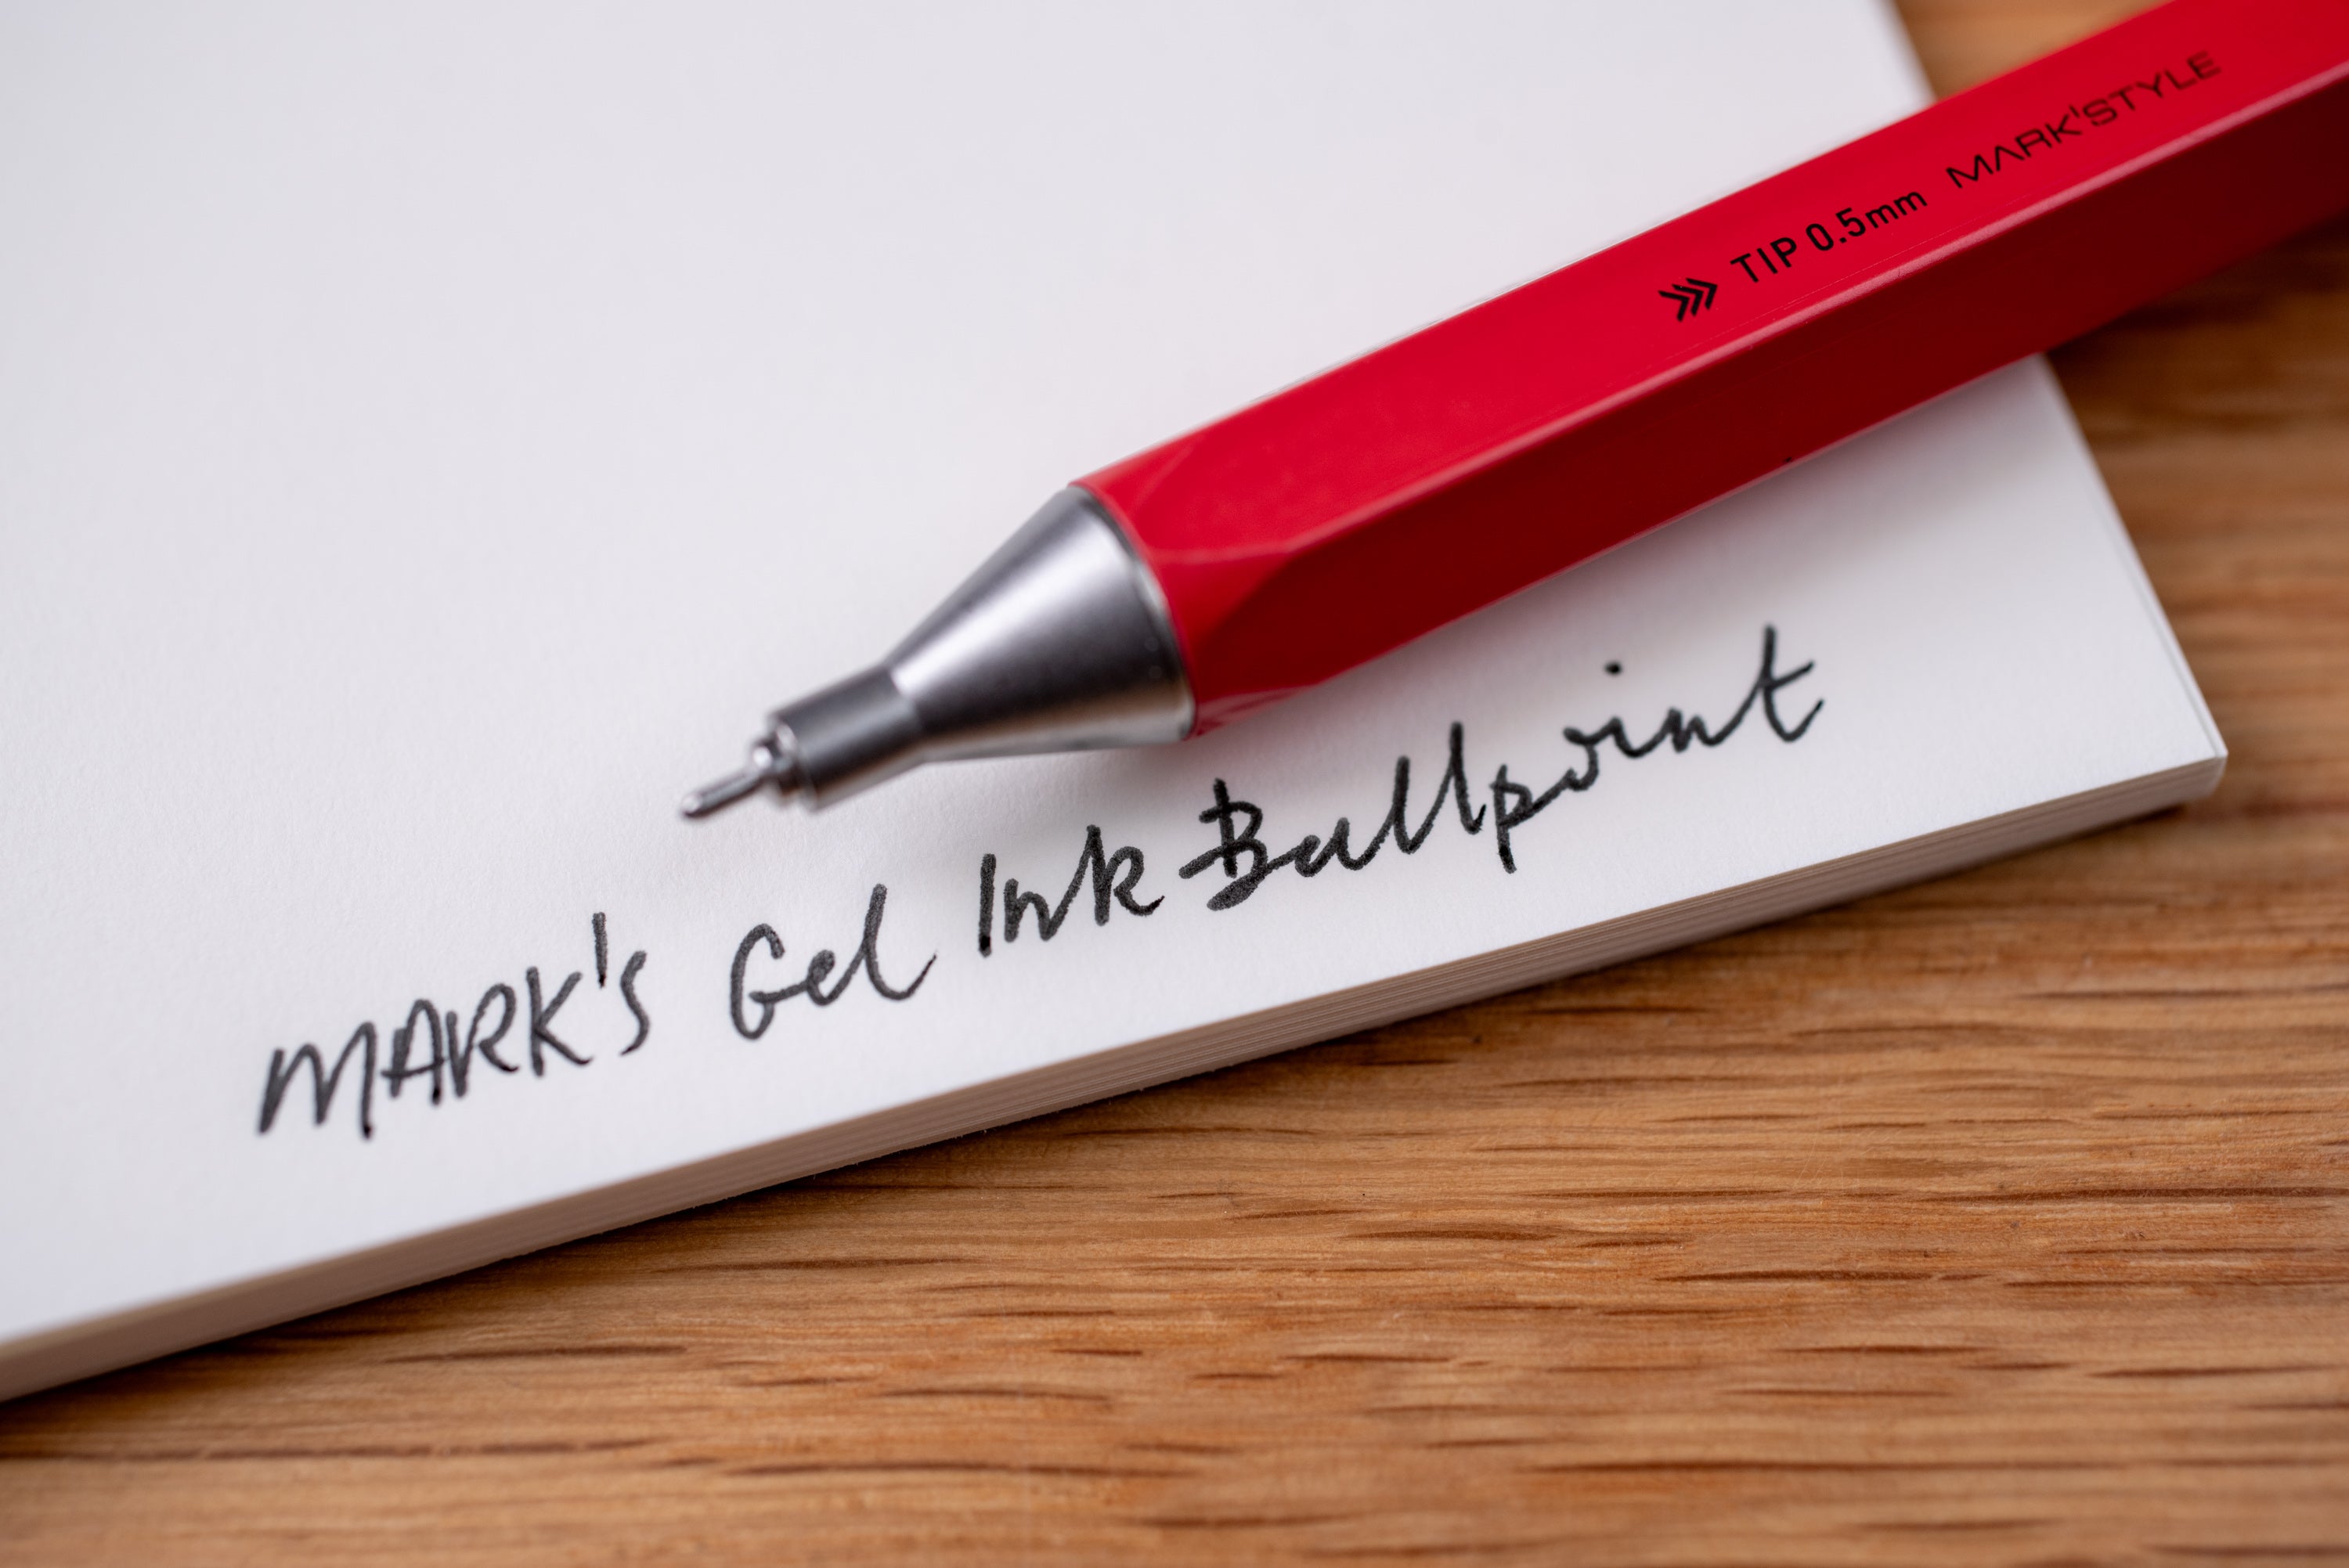 ››› TIP 0.5mm MARK'STYLE
MARK's Gel Ink Ballpoint